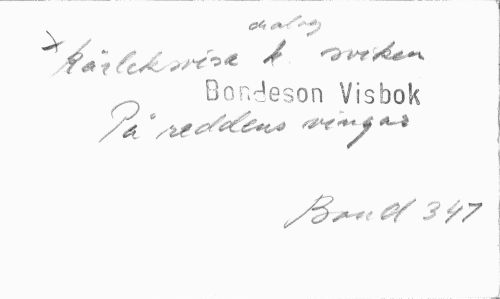 dialog
x Kärleksvisa k. sviken
Bondeson Visbok
På reddens vingar
Bond 347